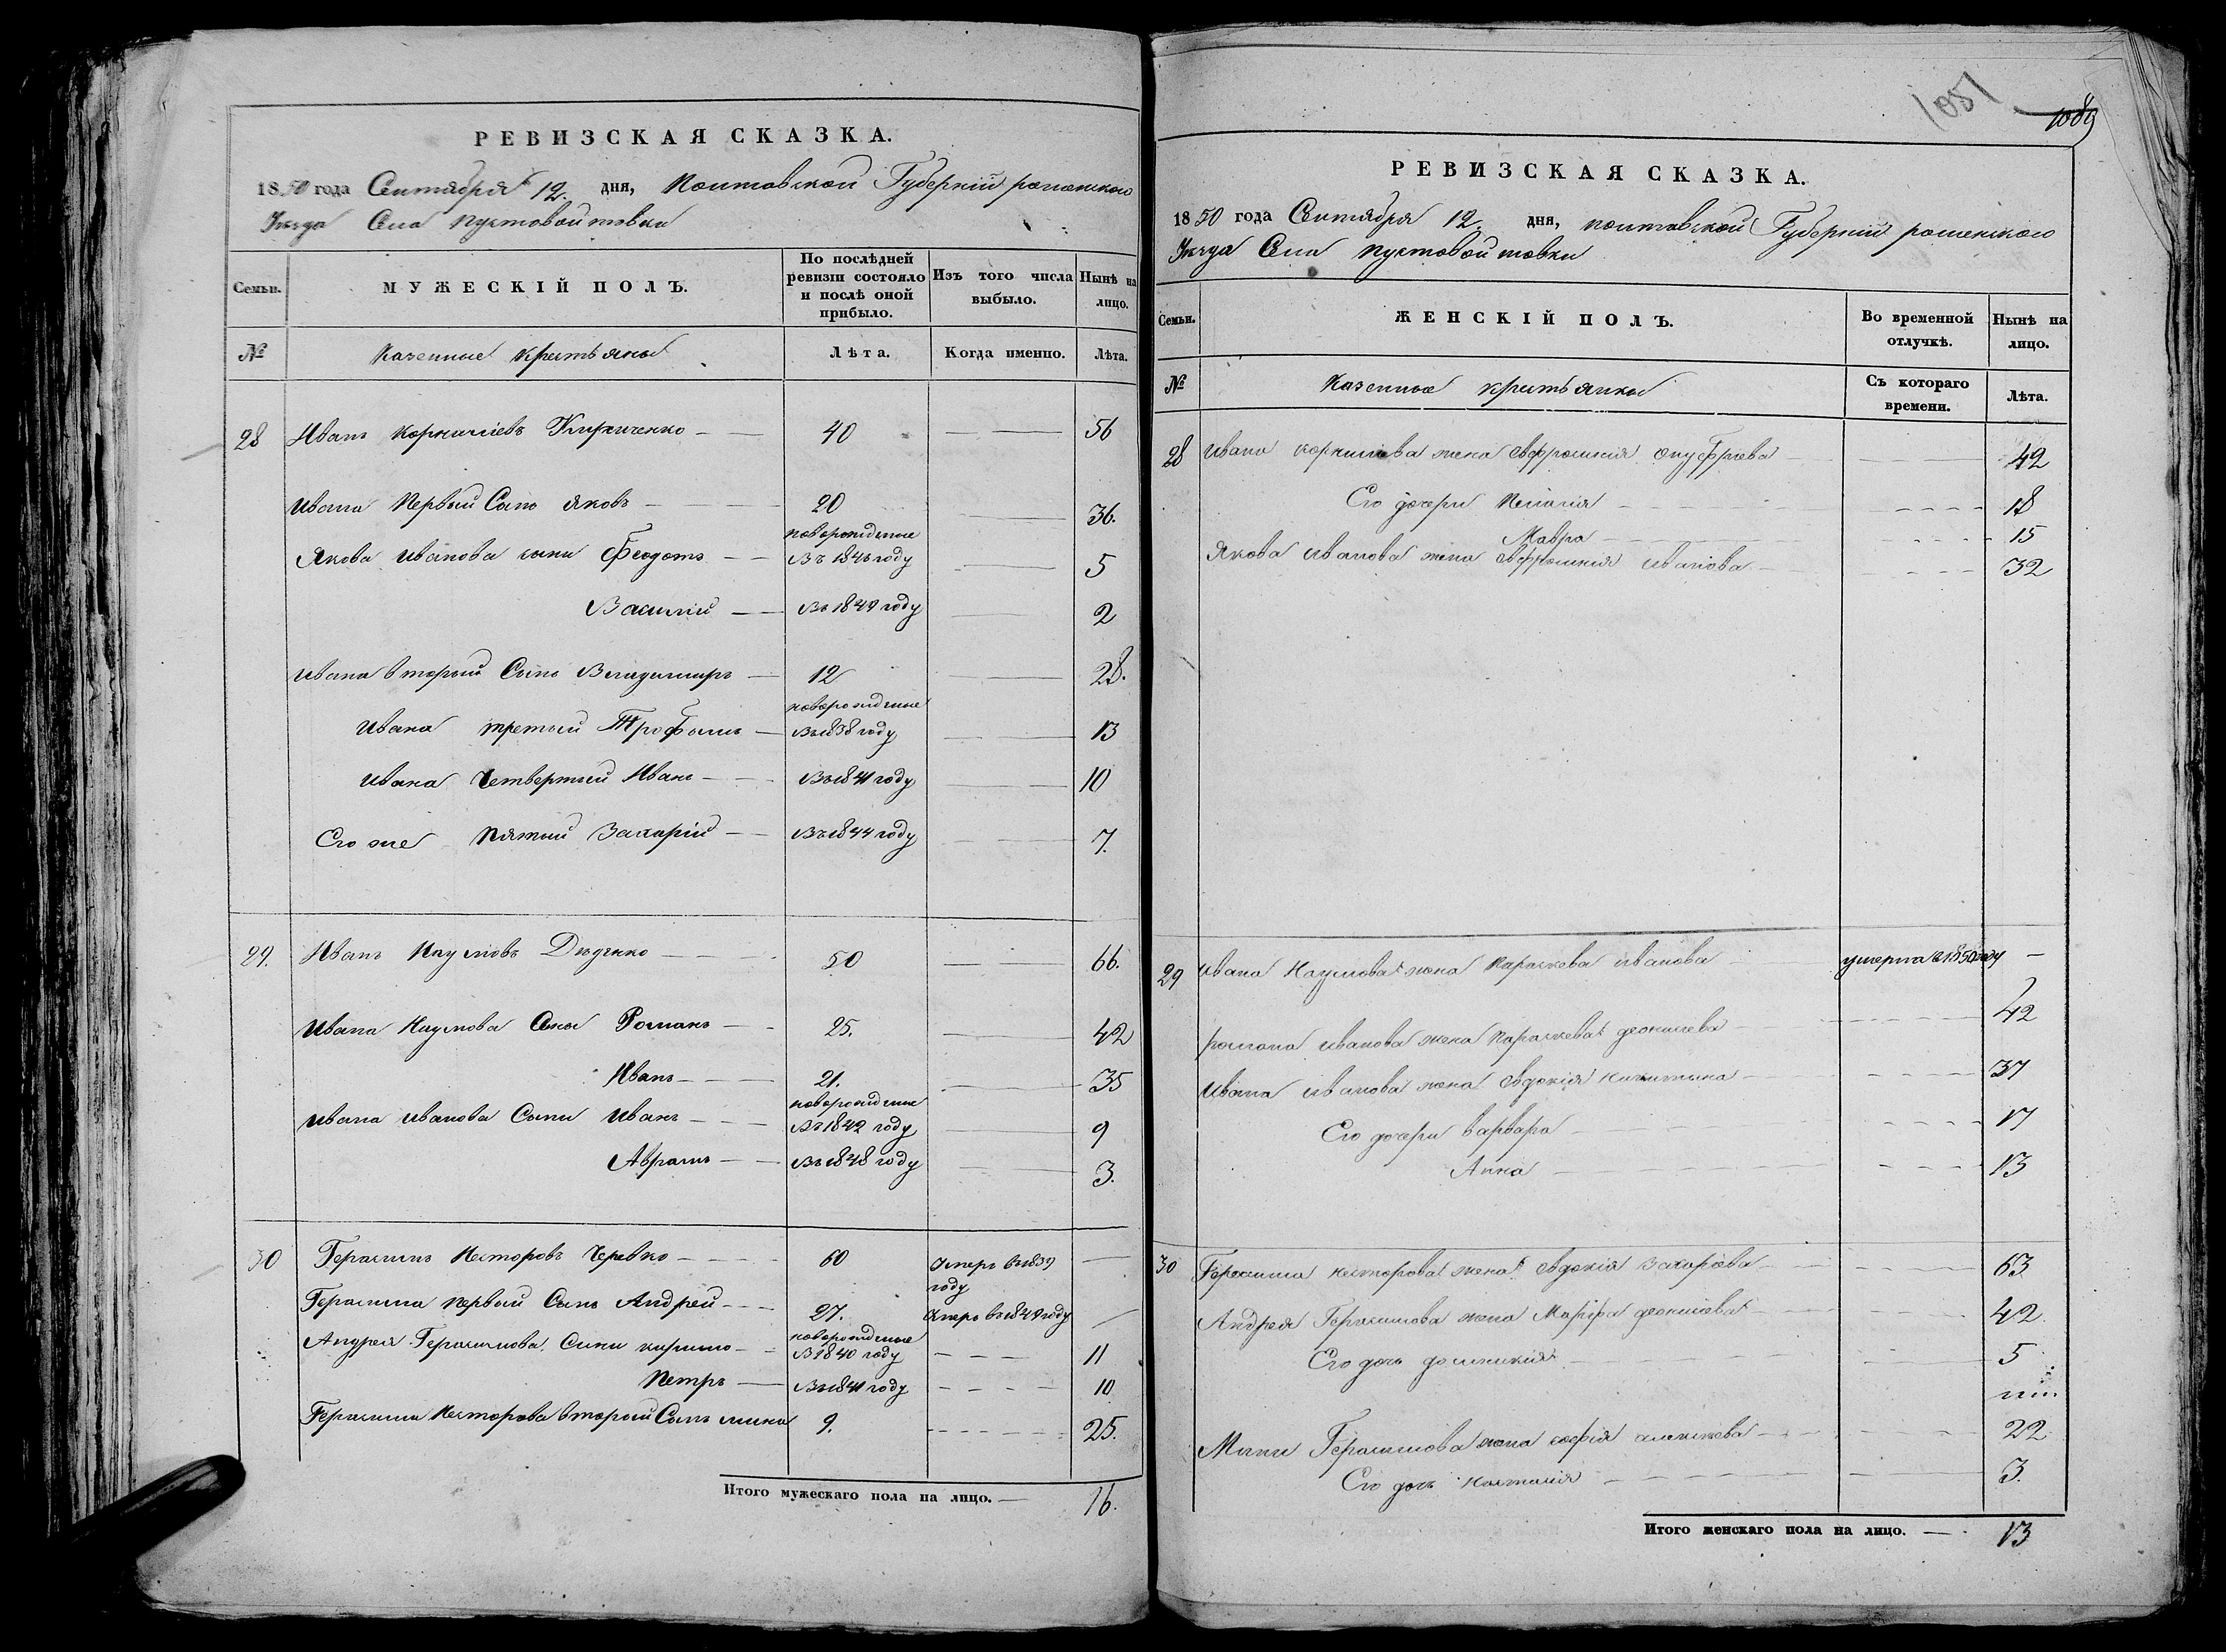 РЕВИЗСКАЯ СКАЗКА.
1850 года Сентября 12 дня, Полтавской Губерніи роменского
Уезда Села пустовойтовки
Семьи. МУЖЕСКІЙ ПОЛЪ. По послѣдней ревизіи состояло и послѣ оной прибыло. Изъ того числа выбыло. Нынѣ на лицо.
№ Казенные крестьяны Лѣта. Когда именно. Лѣта.
28 Иванъ Корнилиевъ Кириченко 40 56
Ивана Первый Сынъ Яковъ 20 36.
Якова Иванова сыни Феодотъ новорожденые Въ 1846 году 5
Василий Въ 1849 году 2
Ивана вторый Сынъ Владимиръ 12 28.
Ивана третий Трофымъ новорожденые Въ 1838 году 13
Ивана Четвертый Иванъ Въ 1841 году 10
Его же Пятый Захарій Въ 1844 году 7.
29. Иванъ Наумовъ 50 66.
Ивана Наумова Сыны Романъ 25. 42
Иванъ 21. 35
Ивана Иванова Сыни Иванъ новорожденые Въ 1842 году 9
Аврамъ Въ 1848 году 3.
30 Герасимъ Несторовъ Черевко 60 Умеръ въ 1839 году
Герасима первый Сынъ Андрей 27. Умеръ въ 1849 году
Андрея Герасимова Сыни кирило новорожденые В 1840 году 11
Петръ Въ 1841 году 10
Герасима Несторова вторый Сынъ мина 9. 25.
Итого мужескаго пола на лицо. 16.
1051
1089
РЕВИЗСКАЯ СКАЗКА.
1850 года Сентября 12 дня, полтавской Губерніи роменского
Уезда Села пустовойтовки
Семьи. ЖЕНСКІЙ ПОЛЪ. Во временной отлучкѣ. Нынѣ на лицо.
№ Казенные крестьянки Съ котораго времени. Лѣта.
28 Ивана корнилиева жена Евфросиния Онуфриева 42
Его дочери Пелагія 18
Мавра 15
Якова Иванова жена Евфросиния Иванова 32
29 Ивана Наумова жена Параскева Иванова умерла в 1850 году
романа Иванова жена Параскева деонисева 42
Ивана Иванова жена Евдокія Никитина 37
Его дочери варвара 17
Анна 13
30 Герасима несторова жена Евдокія Захариева 63
Андрея Герасимова жена Марфа деонисева 42
Его дочь домникия 5
Мини Герасимова жена софія алексеева 22
Его дочь наталия 3.
Итого женскаго пола на лицо. 13